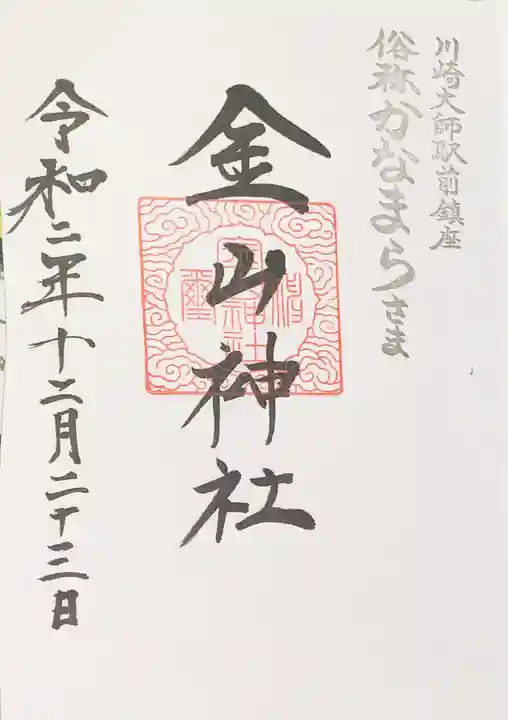 川崎大師駅前鎮座
俗称かなまらさま
金山神社
令和二年十二月二十三日